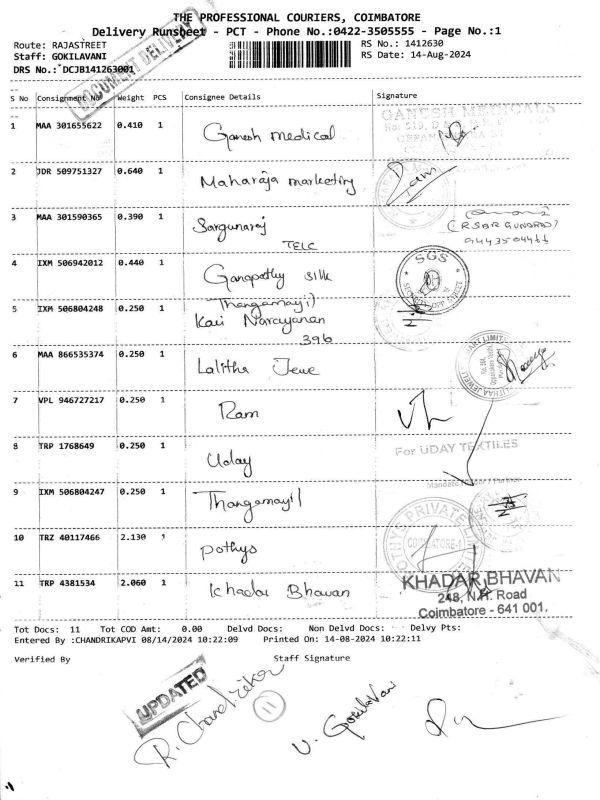 THE PROFESSIONAL COURIERS, COIMBATORE
Delivery Runsheet - PCT - Phone No.:0422-3505555 - Page No.:1
Route: RAJASTREET RS No.: 1412630
Staff: GOKILAVANI RS Date: 14-Aug-2024
DRS No.: DCJB141263001
DOCUMENT DELIVERY
S No Consignment No Weight PCS Consignee Details Signature
1 MAA 301655622 0.410 1 Ganesh medical GANESH MEDICALS
2 JDR 509751327 0.640 1 Maharaja marketing
3 MAA 301590365 0.390 1 Sargunaraj
TELC
4 IXM 506942012 0.440 1 Ganapathy silk SGS
5 IXM 506804248 0.250 1 Thangamayil
Kavi Narayanan
396
6 MAA 866535374 0.250 1 Lalitha Jewe
7 VPL 946727217 0.250 1 Ram
8 TRP 1768649 0.250 1 Uday For UDAY TEXTILES
9 IXM 506804247 0.250 1 Thangamayil
10 TRZ 40117466 2.130 Pothys POTHYS PRIVATE
COIMBATORE-1
11 TRP 4381534 2.060 1 Khadar Bhavan KHADAR BHAVAN
248, N.H. Road
Coimbatore - 641 001.
Tot Docs: 11 Tot COD Amt: 0.00 Delvd Docs: Non Delvd Docs: Delvy Pts:
Entered By :CHANDRIKAPVI 08/14/2024 10:22:09 Printed On: 14-08-2024 10:22:11
Verified By Staff Signature
UPDATED
R. Chandrika
11
V. Gokilavani